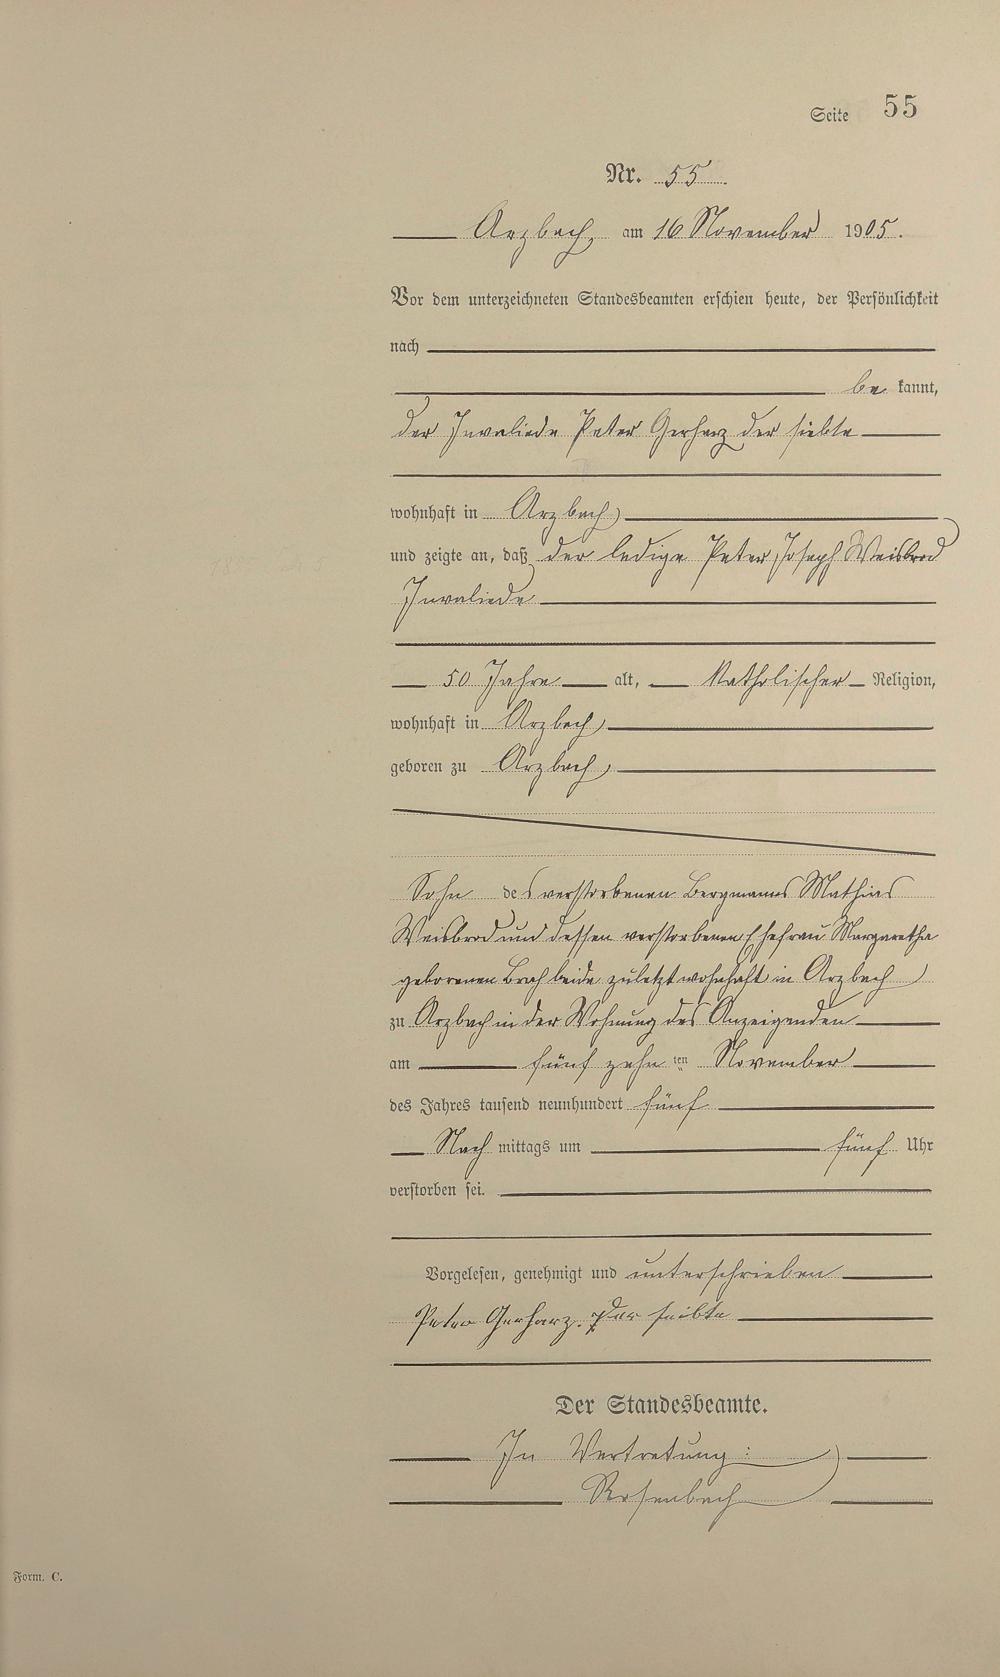 Seite 55
Nr. 55
Arzbach, am 16 November 1905.
Vor dem unterzeichneten Standesbeamten erschien heute, der Persönlichkeit
nach
be kannt,
der Invaliede Peter Gerharz der siebte
wohnhaft in Arzbach,
und zeigte an, daß der ledige Peter Joseph Weisbrod
Invaliede
50 Jahre alt, Katholischer Religion,
wohnhaft in Arzbach,
geboren zu Arzbach,
Sohn des verstorbenen Bergmanns Mathias
Weisbrod und dessen verstorbenen Ehefrau Margaretha
geborenen Brah beide zuletzt wohnhaft in Arzbach
zu Arzbach in der Wohnung des Anzeigenden
am fünf zehn ten November
des Jahres tausend neunhundert fünf
Nach mittags um fünf Uhr
verstorben sei.
Vorgelesen, genehmigt und unterschrieben
Peter Gerharz. der seibte
Der Standesbeamte.
In Vertretung:
Rosenbach
Form. C.